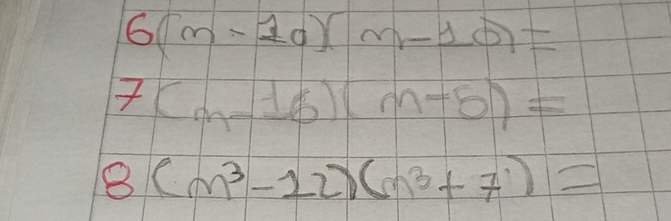 6(m-10)(m-10)=
7(m-16)(m-5)=
8(m³-12)(m³+7)=